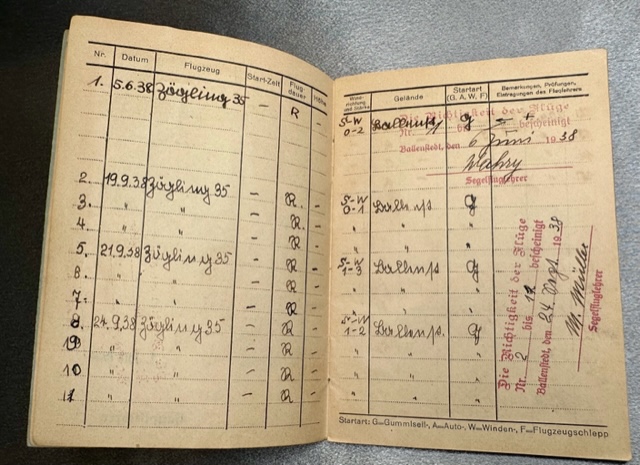 Nr. Datum Flugzeug Start-Zeit Flugdauer Höhe
1. 5.6.38 Zögling 35 – R –
2. 19.9.38 Zögling 35 – R –
3. " " – R. –
4. " " – R –
5. 21.9.38 Zögling 35 – R –
6. " " – R –
7. " " – R –
8 24.9.38 Zögling 35 – R –
9 " " – R –
10 " " – R –
11 " " – R –
Gelände Startart (G. A. W. F) Bemerkungen, Prüfungen, Eintragungen des Fluglehrers
S-W 0-2 Ballenst. g
Die Richtigkeit der Flüge
Nr. bis bescheinigt
Ballenstedt, den 6 Juni 1938
Segelfluglehrer
S-W 0-1 Ballenst. g
" "
" "
S-W 1-3 Ballenst. g
" "
" "
S-W 1-2 Ballenst. g
" "
" "
" "
Die Richtigkeit der Flüge
Nr. 2 bis bescheinigt
Ballenstedt, den 24. 1938
M. Müller
Segelfluglehrer
Startart: G=Gummiseil-, A=Auto-, W=Winden-, F=Flugzeugschlepp